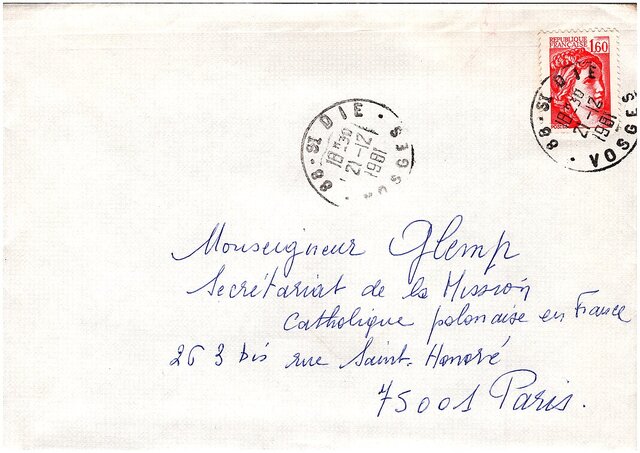 REPUBLIQUE
FRANCAISE 1,60
88-ST DIE · VOSGES ·
18H30
21-12
1981
88-ST DIE · VOSGES ·
18H30
21-12
1981
Monseigneur Glemp
Secrétariat de la Mission
Catholique polonaise en France
263 bis rue Saint-Honoré
75001 Paris.